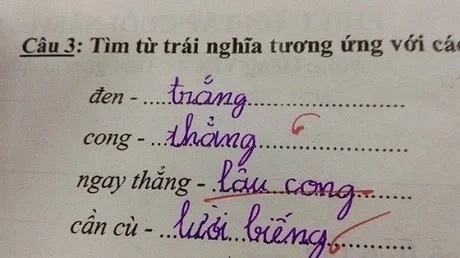 Câu 3: Tìm từ trái nghĩa tương ứng với các
đen - ....trắng....................
cong - ...thẳng....................
ngay thẳng - lâu cong........
cần cù - ...lười biếng..........